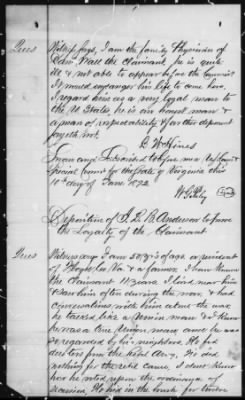 Ques Witness says, I am the family Physician of
Saml Ball the Claimant, he is quite
ill & not able to appear before the Commis
It would endanger his life to come here
I regard him as a very loyal man to
the U States, he is an honest man &
a man of respectability & further deponent
sayeth not
B W Hines
Sworn and Subscribed to before me
Special Commr for the State of Virginia this
10th day of June 1872
Deposition of J. L. B. Anderson to prove
the Loyalty of the Claimant
Ques Witness says I am 50 yrs of age a resident
of Va & a farmer. I have known
the Claimant years. I lived near him
& saw him often during the war & had
conversations with him about the war
he talked like a Union man & I know
he was a true Union man and he was
so regarded by his neighbors. He fed
deserters from the Rebel Army. He did
nothing for the rebel cause. I don't know
how he voted upon the ordinance of
secession He hid in the bush for